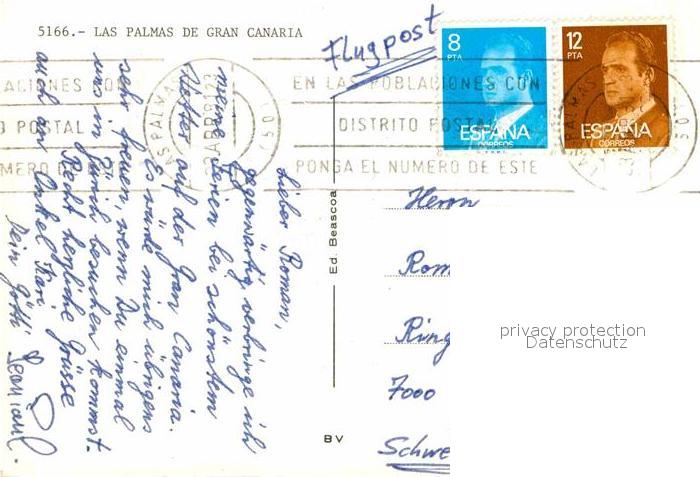 5166.- LAS PALMAS DE GRAN CANARIA
Flugpost
8
PTA
ESPAÑA
CORREOS
12
PTA
ESPAÑA
CORREOS
EN LAS POBLACIONES CON
DISTRITO POSTAL
PONGA EL NUMERO DE ESTE
ACIONES CON
POSTAL
MERO
Lieber Roman,
gegenwärtig verbringe ich
meine Ferien bei schönstem
Wetter auf der Gran Canaria.
Es würde mich übrigens
sehr freuen, wenn Du einmal
uns in Zürich besuchen kommst.
Recht herzliche Grüsse
auch an Onkel
Dein Götti
Ed. Beascoa
BV
Herrn
Rom
Ring
7000
Schwe
privacy protection
Datenschutz